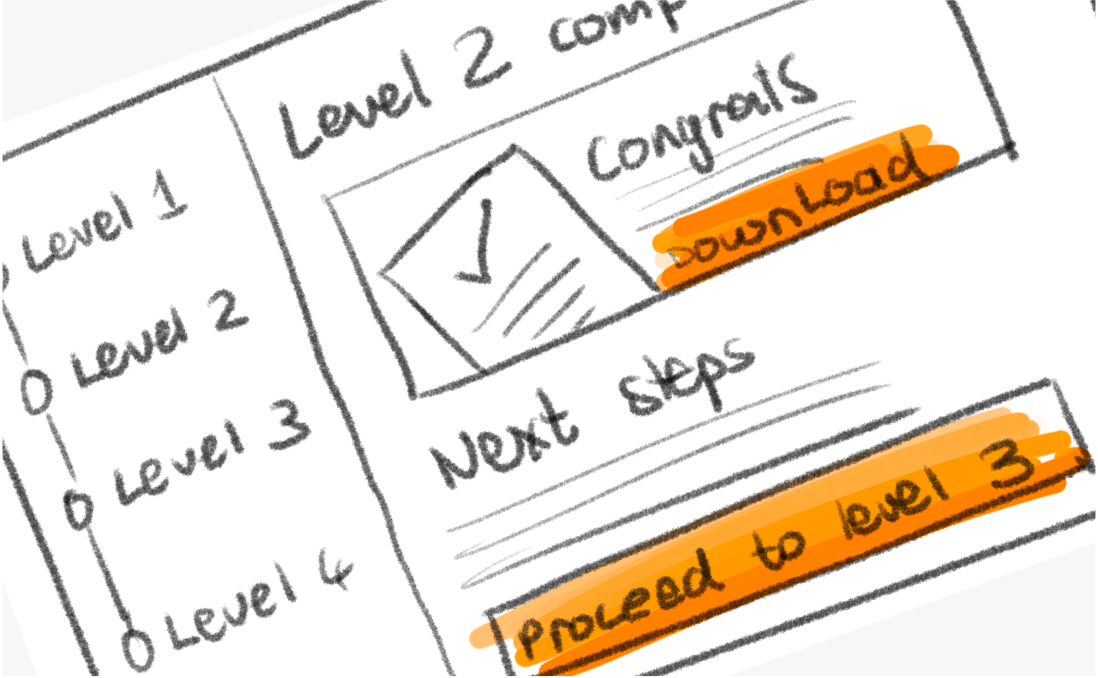 Level 1
Level 2
Level 3
Level 4
Level 2 comp
Congrats
Download
Next steps
Proceed to level 3